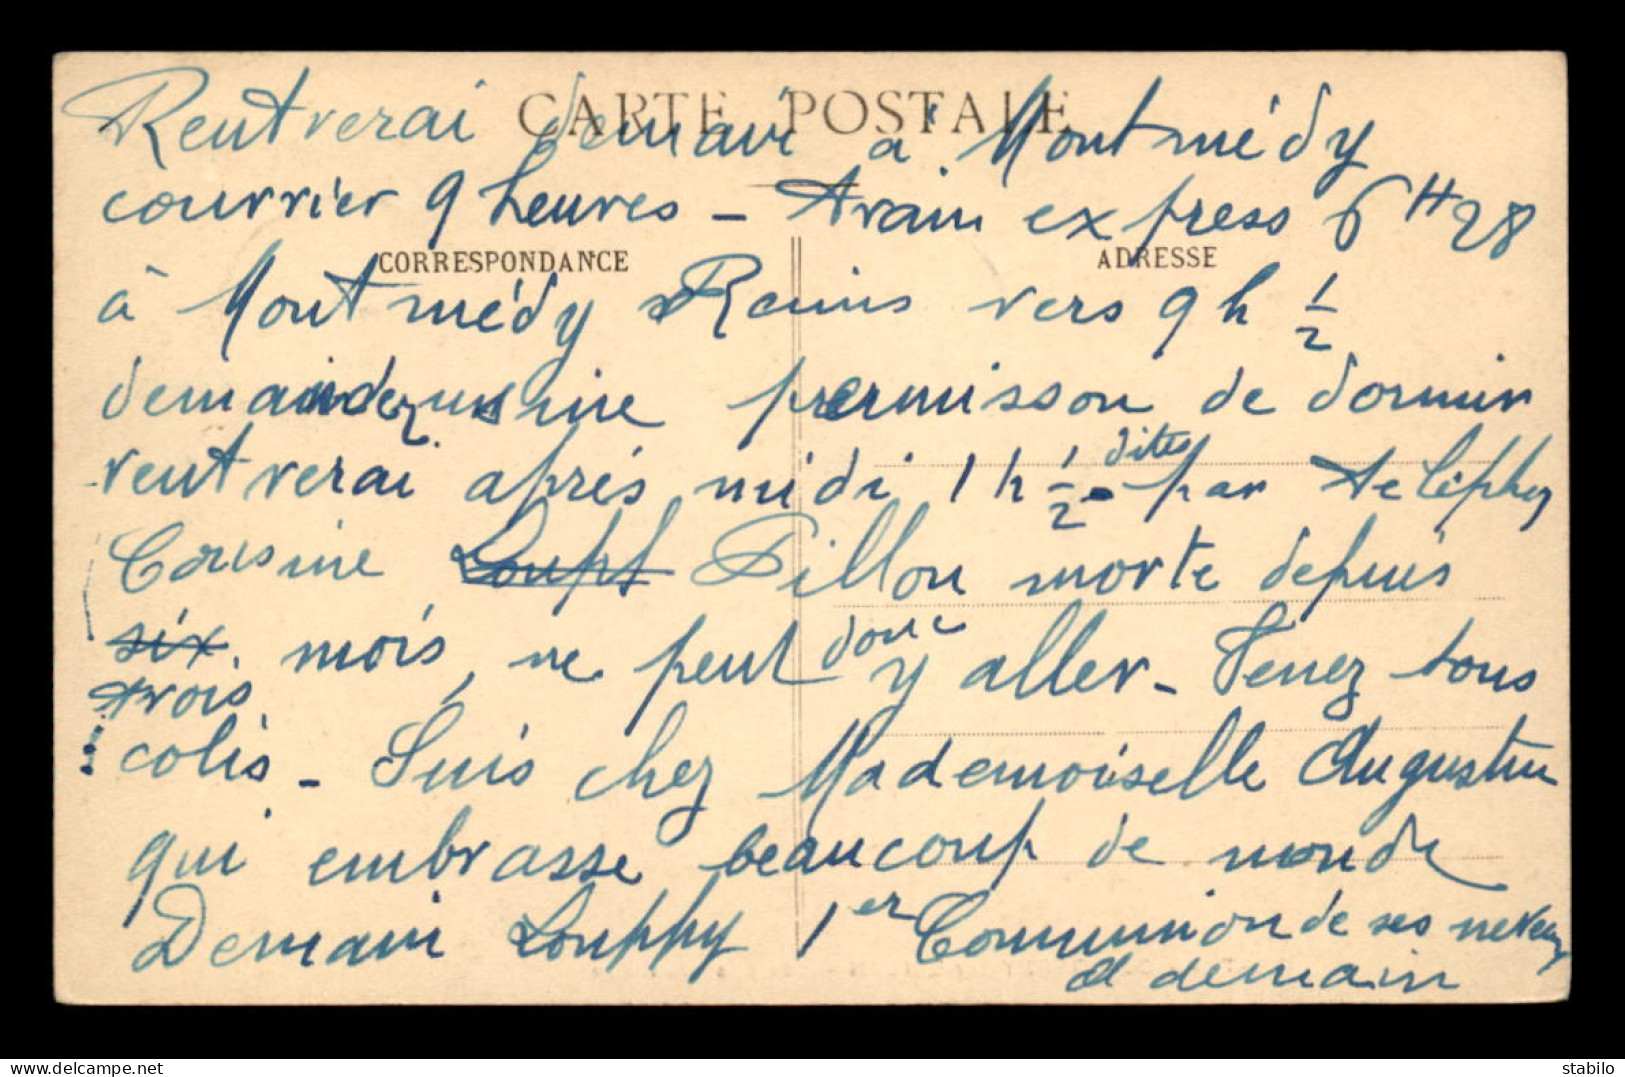 CARTE POSTALE
Rentrerai demain à Montmédy
courrier 9 heures - train express 6 H 28
CORRESPONDANCE ADRESSE
à Montmédy Reims vers 9 h 1/2
demandez usine permisson de dormir
rentrerai après midi 1 h 1/2 - dites par
Cousine Loupt Pillon morte depuis
six trois mois, ne peut donc y aller - Tenez tous
colis - Suis chez Mademoiselle Augustine
qui embrasse beaucoup de monde
Demain Louppy 1er Communion de ses neveux
A demain
stabilo